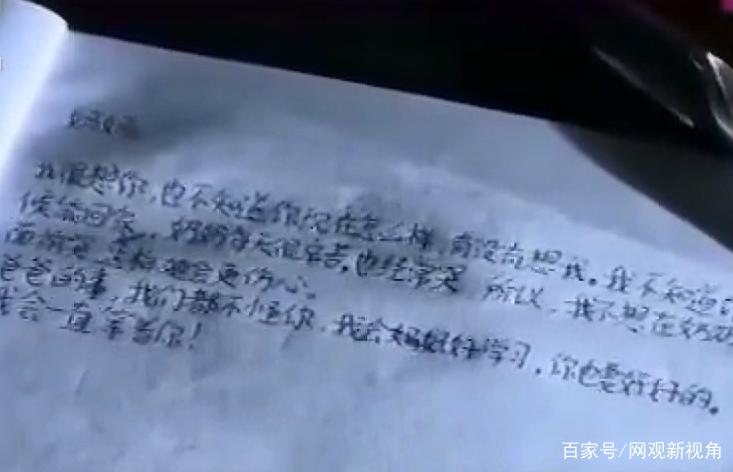 妈妈
我很想你,也不知道你现在怎么样,有没有想我。我不知道你
候能回家,奶奶每天很辛苦,也经常哭 所以,我不想在奶奶
面前 她会更伤心。
爸爸的事,我们都不怪你,我会好好学习,你也要好好的。
我会一直等着你!
百家号/网观新视角